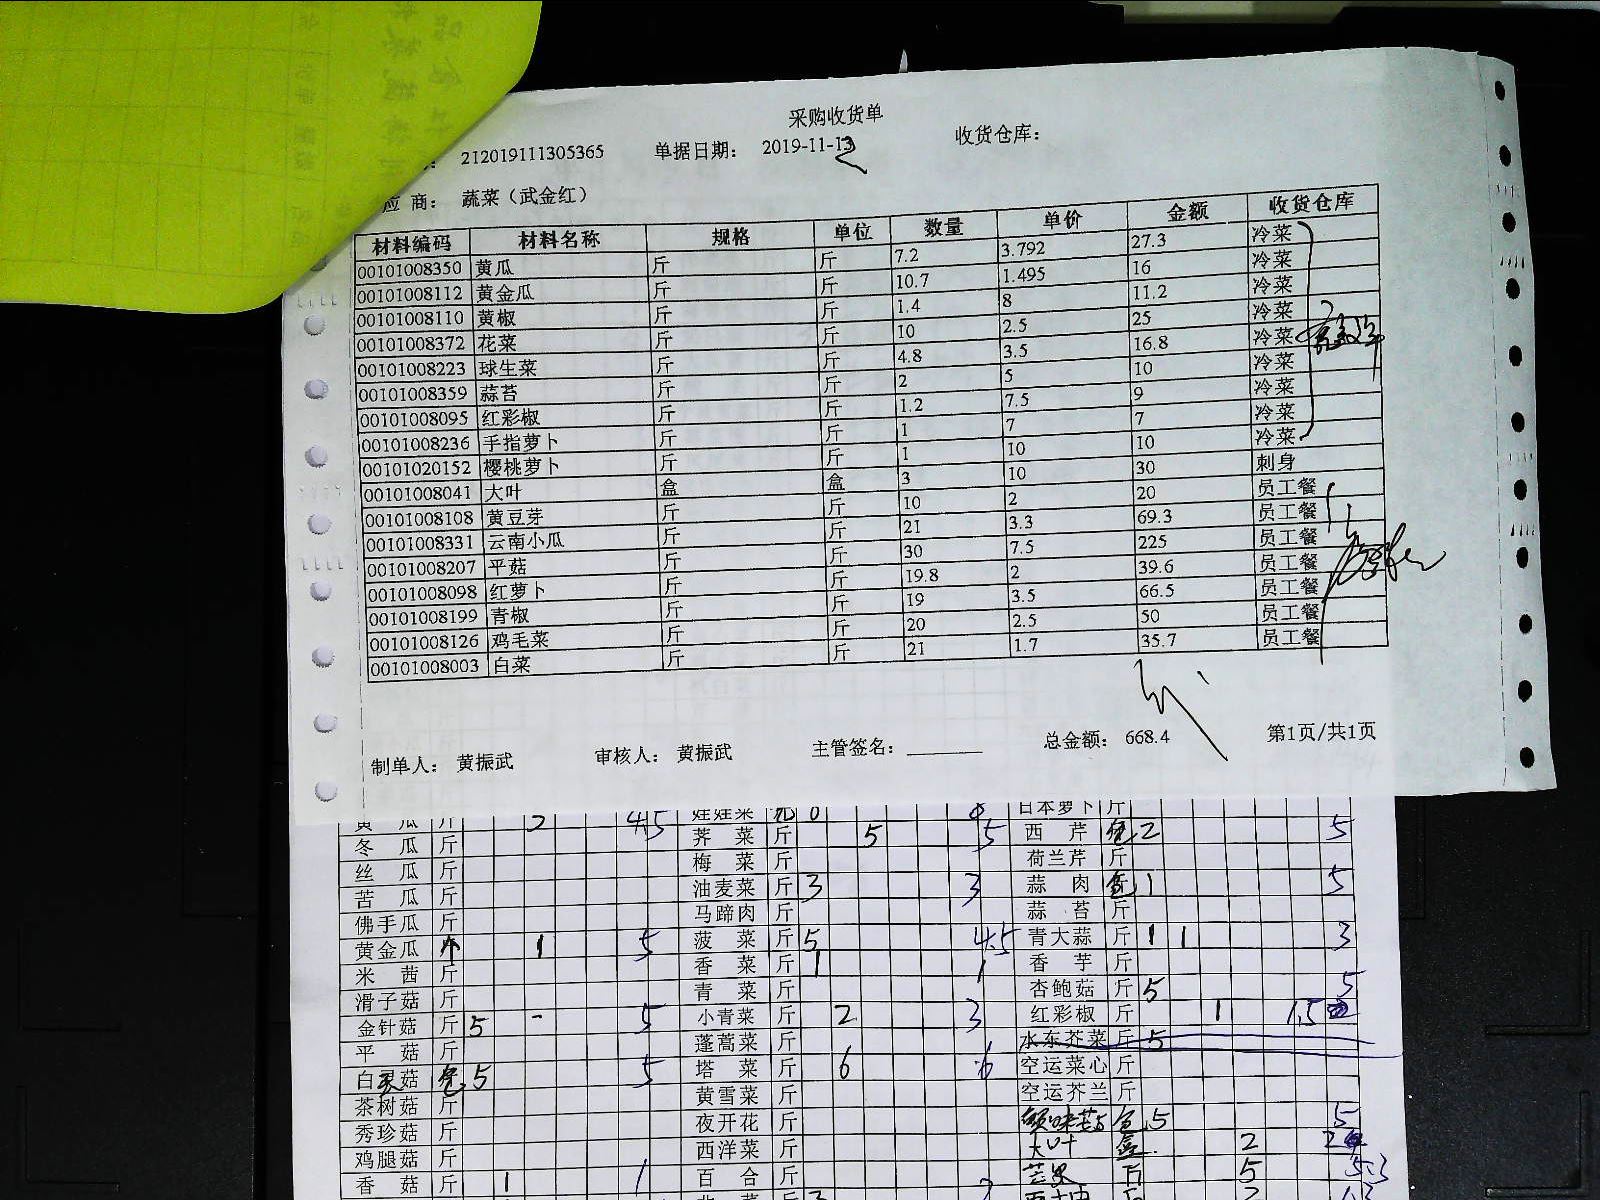 采购收货单
212019111305365 单据日期: 2019-11-13 收货仓库:
应 商: 蔬菜（武金红）
材料编码 材料名称 规格 单位 数量 单价 金额 收货仓库
00101008350 黄瓜 斤 斤 7.2 3.792 27.3 冷菜
00101008112 黄金瓜 斤 斤 10.7 1.495 16 冷菜
00101008110 黄椒 斤 斤 1.4 8 11.2 冷菜
00101008372 花菜 斤 斤 10 2.5 25 冷菜
00101008223 球生菜 斤 斤 4.8 3.5 16.8 冷菜
00101008359 蒜苔 斤 斤 2 5 10 冷菜
00101008095 红彩椒 斤 斤 1.2 7.5 9 冷菜
00101008236 手指萝卜 斤 斤 1 7 7 冷菜
00101020152 樱桃萝卜 斤 斤 1 10 10 冷菜
00101008041 大叶 盒 盒 3 10 30 刺身
00101008108 黄豆芽 斤 斤 10 2 20 员工餐
00101008331 云南小瓜 斤 斤 21 3.3 69.3 员工餐
00101008207 平菇 斤 斤 30 7.5 225 员工餐
00101008098 红萝卜 斤 斤 19.8 2 39.6 员工餐
00101008199 青椒 斤 斤 19 3.5 66.5 员工餐
00101008126 鸡毛菜 斤 斤 20 2.5 50 员工餐
00101008003 白菜 斤 斤 21 1.7 35.7 员工餐
制单人: 黄振武 审核人: 黄振武 主管签名: 总金额: 668.4 第1页/共1页
黄 瓜 斤 2 4.5 娃娃菜 8 日本萝卜 斤
冬 瓜 斤 荠 菜 斤 5 5 西 芹 包 2 5
丝 瓜 斤 梅 菜 斤 荷兰芹 斤
苦 瓜 斤 油麦菜 斤 3 3 蒜 肉 包 1 5
佛手瓜 斤 马蹄肉 斤 蒜 苔 斤
黄金瓜 个 1 5 菠 菜 斤 5 4.5 青大蒜 斤 1 1 3
米 茜 斤 香 菜 斤 1 1 香 芋 斤
滑子菇 斤 青 菜 斤 杏鲍菇 斤 5 5
金针菇 斤 5 - 5 小青菜 斤 2 3 红彩椒 斤 1 1.5
平 菇 斤 蓬蒿菜 斤 水东芥菜 斤 5
白灵菇 包 5 5 塔 菜 斤 6 6 空运菜心 斤
茶树菇 斤 黄雪菜 斤 空运芥兰 斤
秀珍菇 斤 夜开花 斤 包 5 5
鸡腿菇 斤 西洋菜 斤 大叶 盒 2 2
香 菇 斤 1 1 百 合 斤 5 5.3